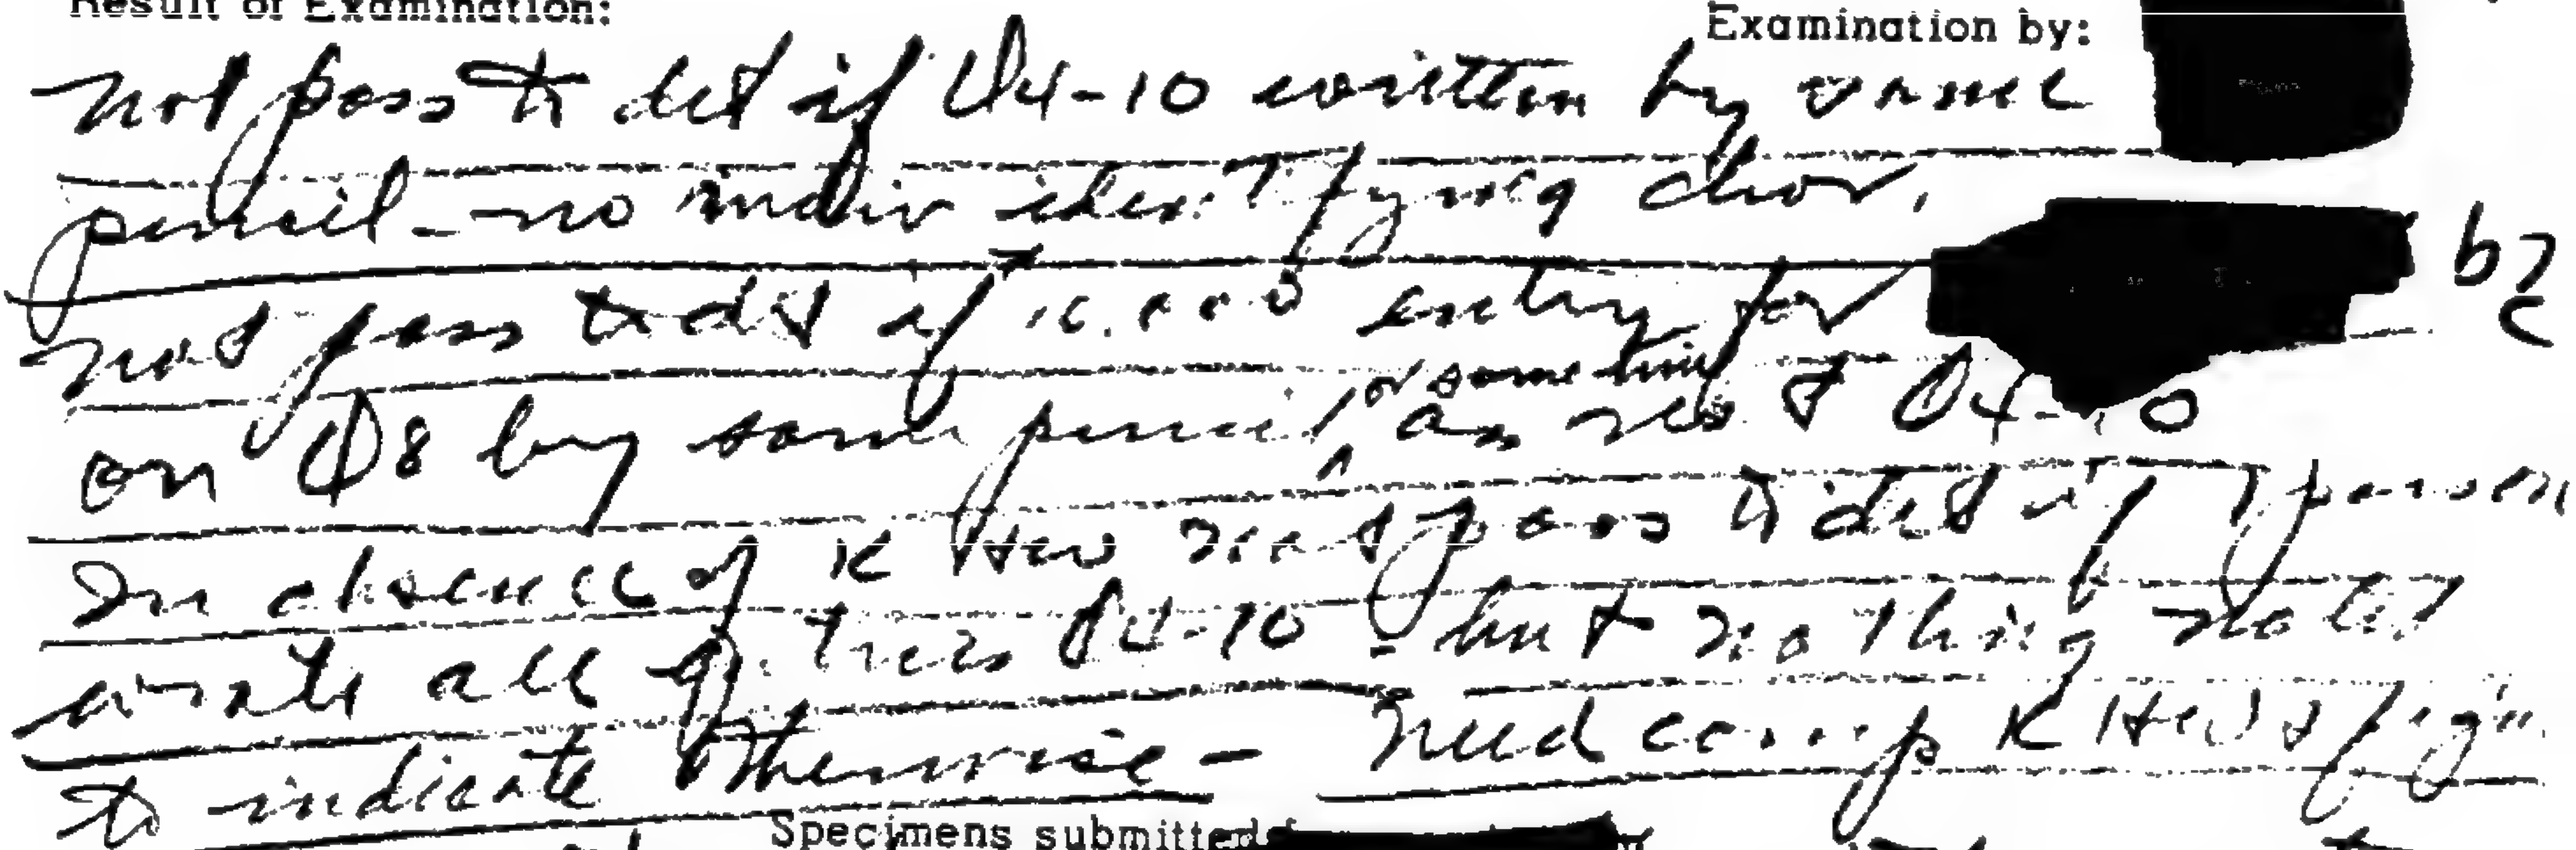 Result of Examination:
Examination by:
not poss to det if Q4-10 written by same
pencil - no indiv identifying char.
b7c
not poss to det if 10,000 entry for
or same time
on Q8 by same pencil, as rest of Q4-10
In absence of K Hw not poss to det if 1 person
wrote all of Q4-10 - but nothing noted
to indicate otherwise - Need comp K Hw &
Specimens submitted